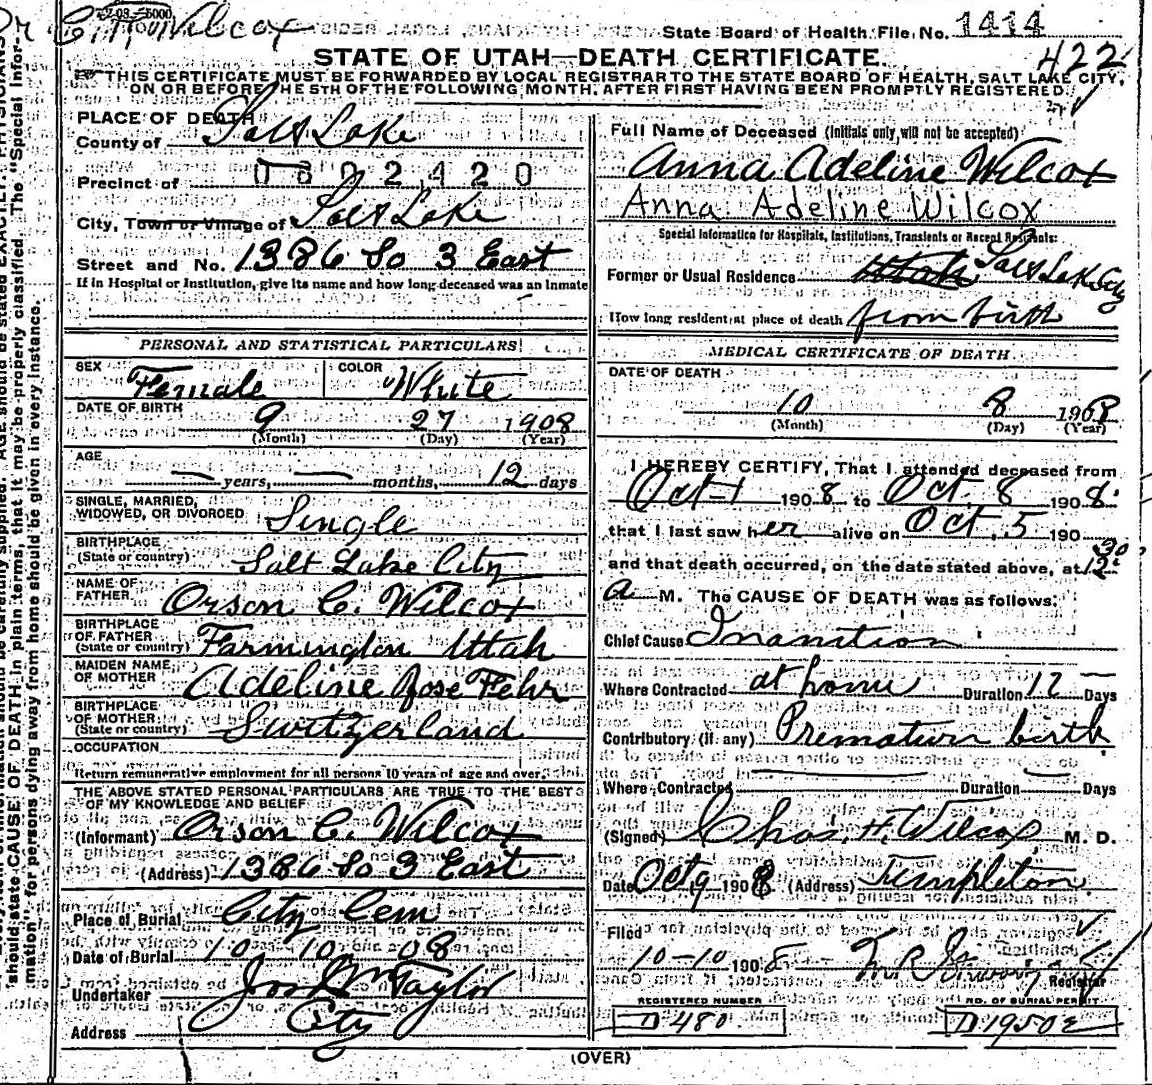 2-08-5000
Dr C. H. Wilcox
State Board of Health File No. 1414
422
STATE OF UTAH—DEATH CERTIFICATE.
THIS CERTIFICATE MUST BE FORWARDED BY LOCAL REGISTRAR TO THE STATE BOARD OF HEALTH, SALT LAKE CITY,
ON OR BEFORE THE 5TH OF THE FOLLOWING MONTH, AFTER FIRST HAVING BEEN PROMPTLY REGISTERED.
PLACE OF DEATH
County of Salt Lake
0802420
Precinct of
City, Town or Village of Salt Lake
Street and No. 1386 So 3 East
If in Hospital or Institution, give its name and how long deceased was an inmate
PERSONAL AND STATISTICAL PARTICULARS
SEX Female COLOR White
DATE OF BIRTH 9 27 1908
(Month) (Day) (Year)
AGE — years, — months, 12 days
SINGLE, MARRIED,
WIDOWED, OR DIVORCED Single
BIRTHPLACE
(State or country) Salt Lake City
NAME OF
FATHER Orson C. Wilcox
BIRTHPLACE
OF FATHER
(State or country) Farmington Utah
MAIDEN NAME
OF MOTHER Adeline Rose Fehr
BIRTHPLACE
OF MOTHER
(State or country) Switzerland
OCCUPATION
Return remunerative employment for all persons 10 years of age and over.
THE ABOVE STATED PERSONAL PARTICULARS ARE TRUE TO THE BEST
OF MY KNOWLEDGE AND BELIEF
(Informant) Orson C. Wilcox
(Address) 1386 So 3 East
Place of Burial City Cem
Date of Burial 10 - 10 - 08
Undertaker Jos Wm Taylor
Address City
Full Name of Deceased (Initials only, will not be accepted)
Anna Adeline Wilcox
Anna Adeline Wilcox
Special Information for Hospitals, Institutions, Transients or Recent Residents:
Former or Usual Residence Utah Salt Lake City
How long resident at place of death from birth
MEDICAL CERTIFICATE OF DEATH.
DATE OF DEATH
10 8 1908
(Month) (Day) (Year)
I HEREBY CERTIFY, That I attended deceased from
Oct-1 1908 to Oct. 8 1908.
that I last saw her alive on Oct. 5 190
and that death occurred, on the date stated above, at 12 30
a M. The CAUSE OF DEATH was as follows:
Chief Cause Inanition
Where Contracted at home Duration 12 Days
Contributory (if any) Premature birth
Where Contracted Duration Days
(Signed) Chas. H. Wilcox, M. D.
Date Oct 9 1908 (Address) Templeton
Filed
10-10 1908
Registrar
REGISTERED NUMBER
D 480
NO. OF BURIAL PERMIT
D 19502
(OVER)
should state CAUSE OF DEATH in plain terms, that it may be properly classified. The "Special Infor-
mation" for persons dying away from home should be given in every instance.